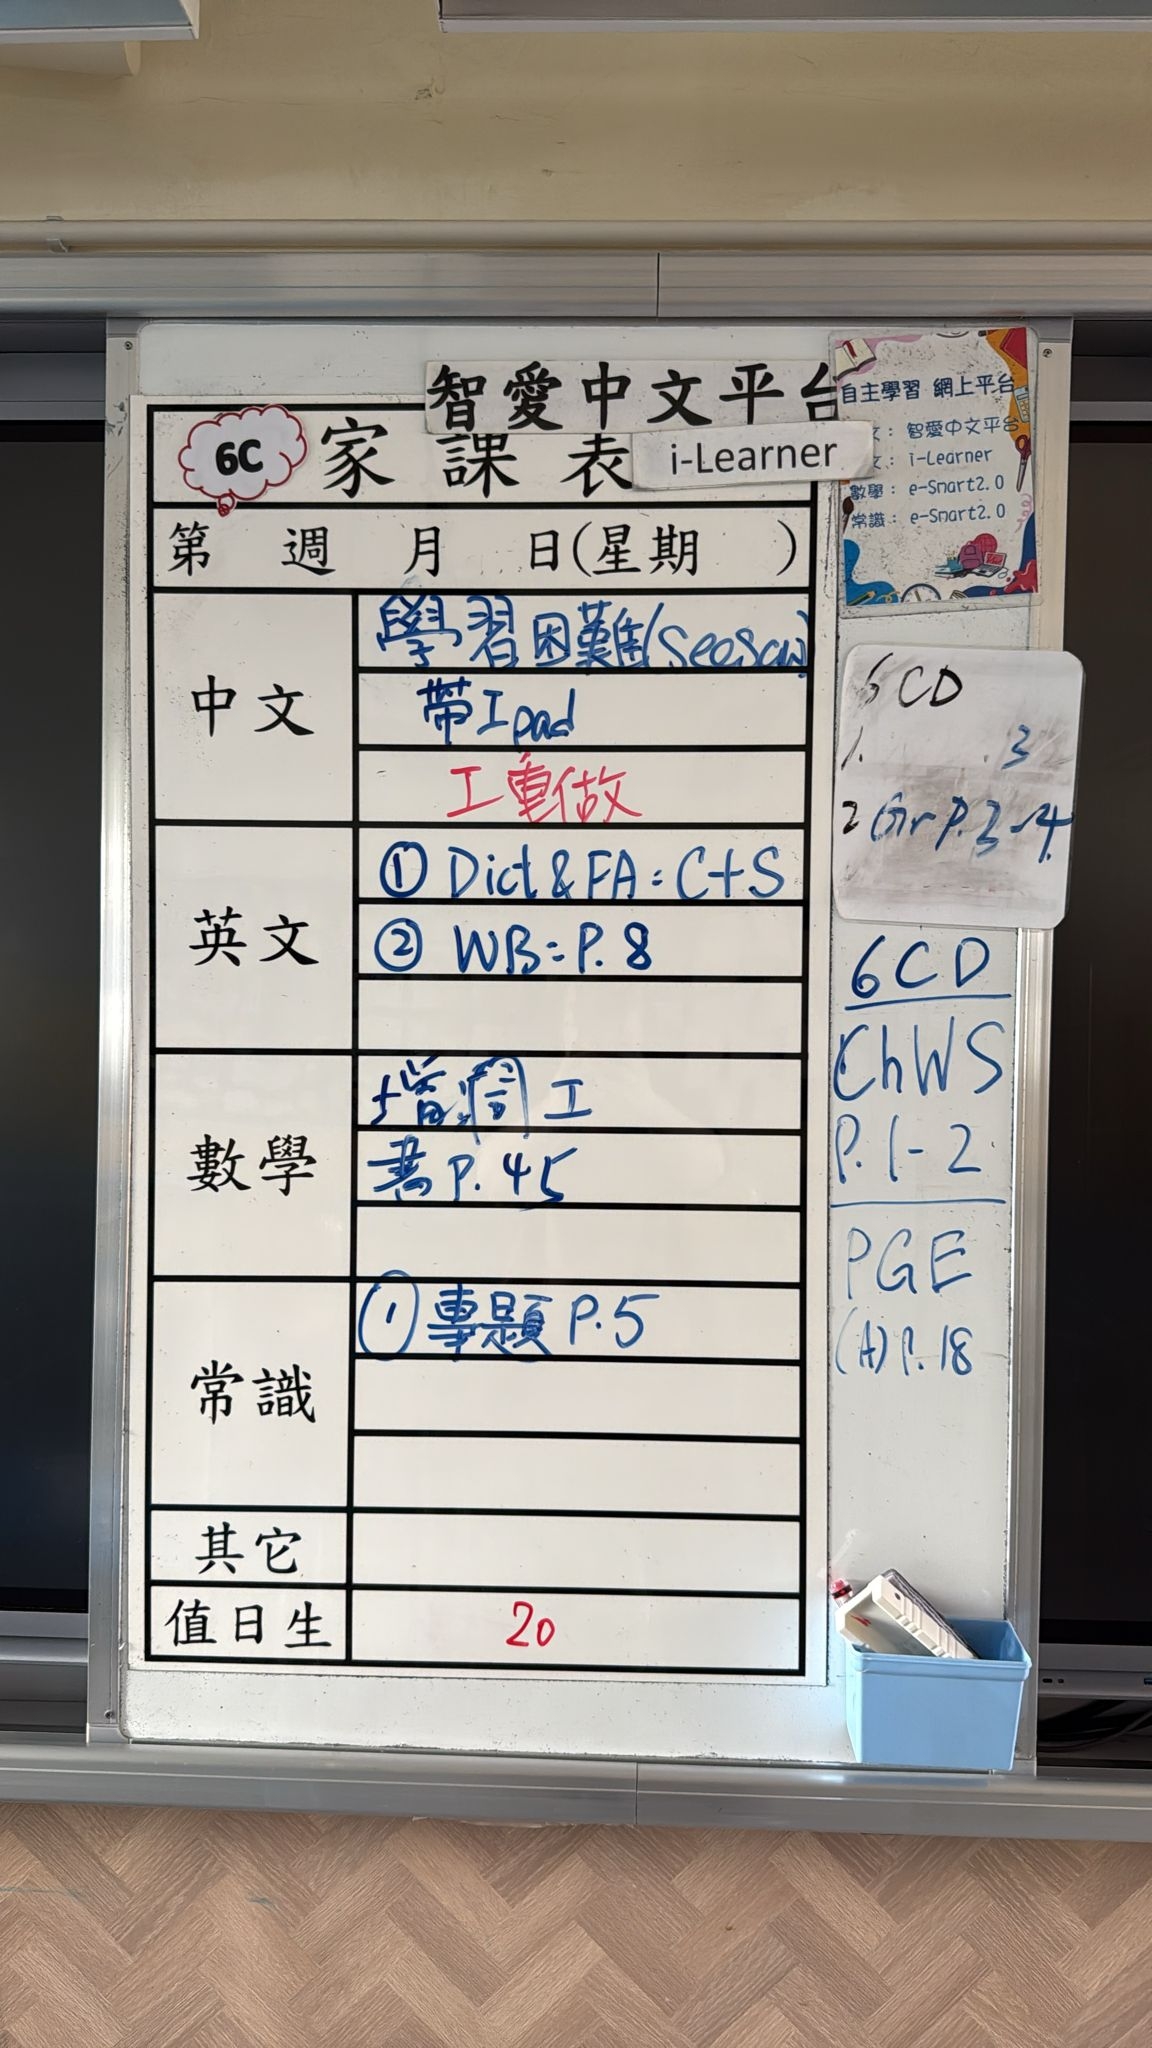 智愛中文平台
6C
家課表
i-Learner
第 週 月 日(星期 )
中文
學習困難(Seesaw)
帶Ipad
工重做
英文
① Dict & FA = C+S
② WB = P. 8
數學
工
書P.45
常識
① 專題 P.5
其它
值日生
20
自主學習 網上平台
文: 智愛中文平台
文: i-Learner
數學: e-Smart2.0
常識: e-Smart2.0
6CD
1. .3
2 Gr P.3-4
6CD
ChWS
P.1-2
PGE
(A) P.18